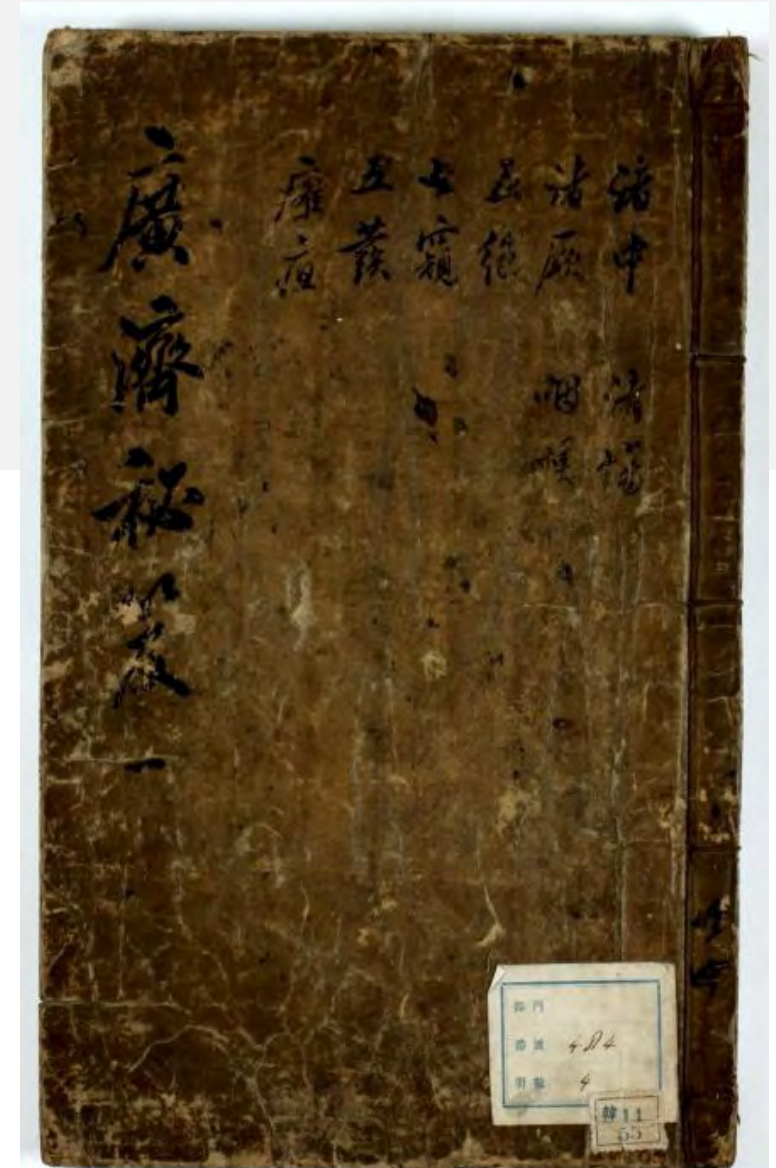 諸中 諸傷
諸厥 咽喉
五絶
七竅
五發
癰疽
廣濟祕笈 一
部門
番號 484
冊數 4
韓11
55